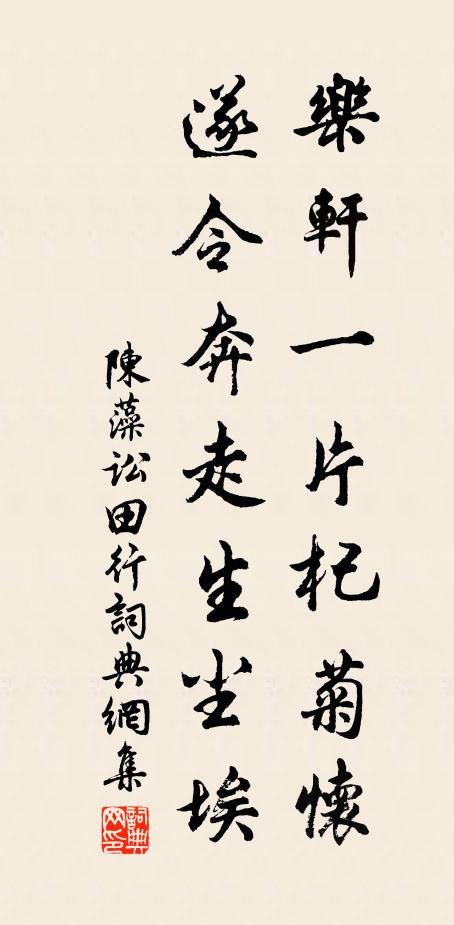 樂軒一片杞菊懷
遂令奔走生尘埃
陳藻訟田行詞典網集
詞典网印